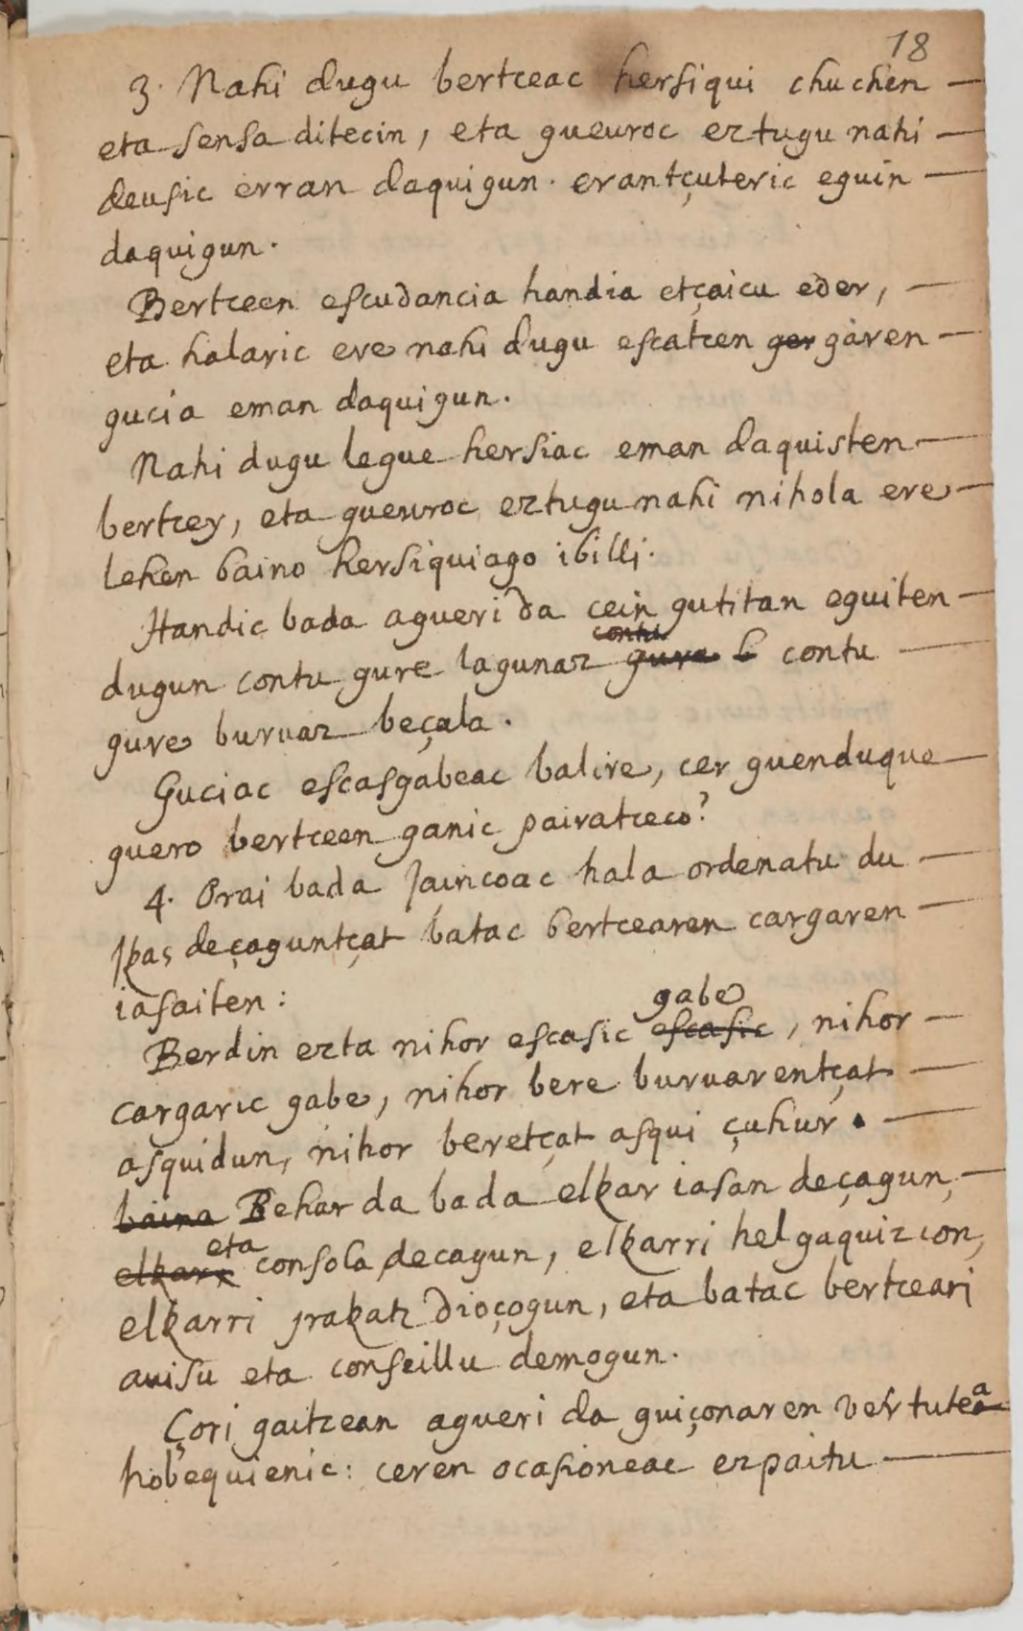 18
3. Nahi dugu bertceac hersiqui chuchen —
eta sensa ditecin, eta gueuroc eztugu nahi —
deusic erran daquigun. erantçuteric eguin —
daquigun.
Bertceen escudancia handia etçaicu eder, —
eta halaric ere nahi dugu escatcen ger garen —
gucia eman daquigun.
Nahi dugu legue hersiac eman daquisten —
bertcey, eta gueuroc eztugu nahi nihola ere —
lehen baino hersiquiago ibilli.
Handic bada agueri da cein gutitan eguiten —
contu
dugun contu gure lagunaz gure b contu —
gure buruaz beçala.
Guciac escasgabeac balire, cer guenduque —
guero bertceen ganic pairatceco?
4. Orai bada Jaincoac hala ordenatu du —
Ikas deçaguntçat batac bertcearen cargaren —
iasaiten:
gabe
Berdin ezta nihor escasic escasic, nihor —
cargaric gabe, nihor bere buruarentçat —
asquidun, nihor beretçat asqui çuhur. —
baina Behar da bada elkar iasan deçagun, —
eta
elkarr consola decagun, elkarri helgaquizcon,
elkarri irakatz dioçogun, eta batac bertceari
auisu eta conseillu demogun.
Çori gaitzean agueri da guiçonaren vertutea
hobequienic: ceren ocasioneac ezpaitu —